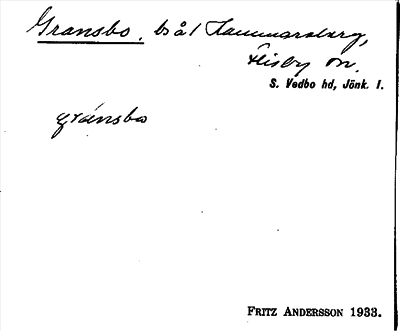 Gransbo. bs å l Hammarsberg,
Flisby sn.
S. Vedbo hd, Jönk. l.
gránsbo
FRITZ ANDERSSON 1933.